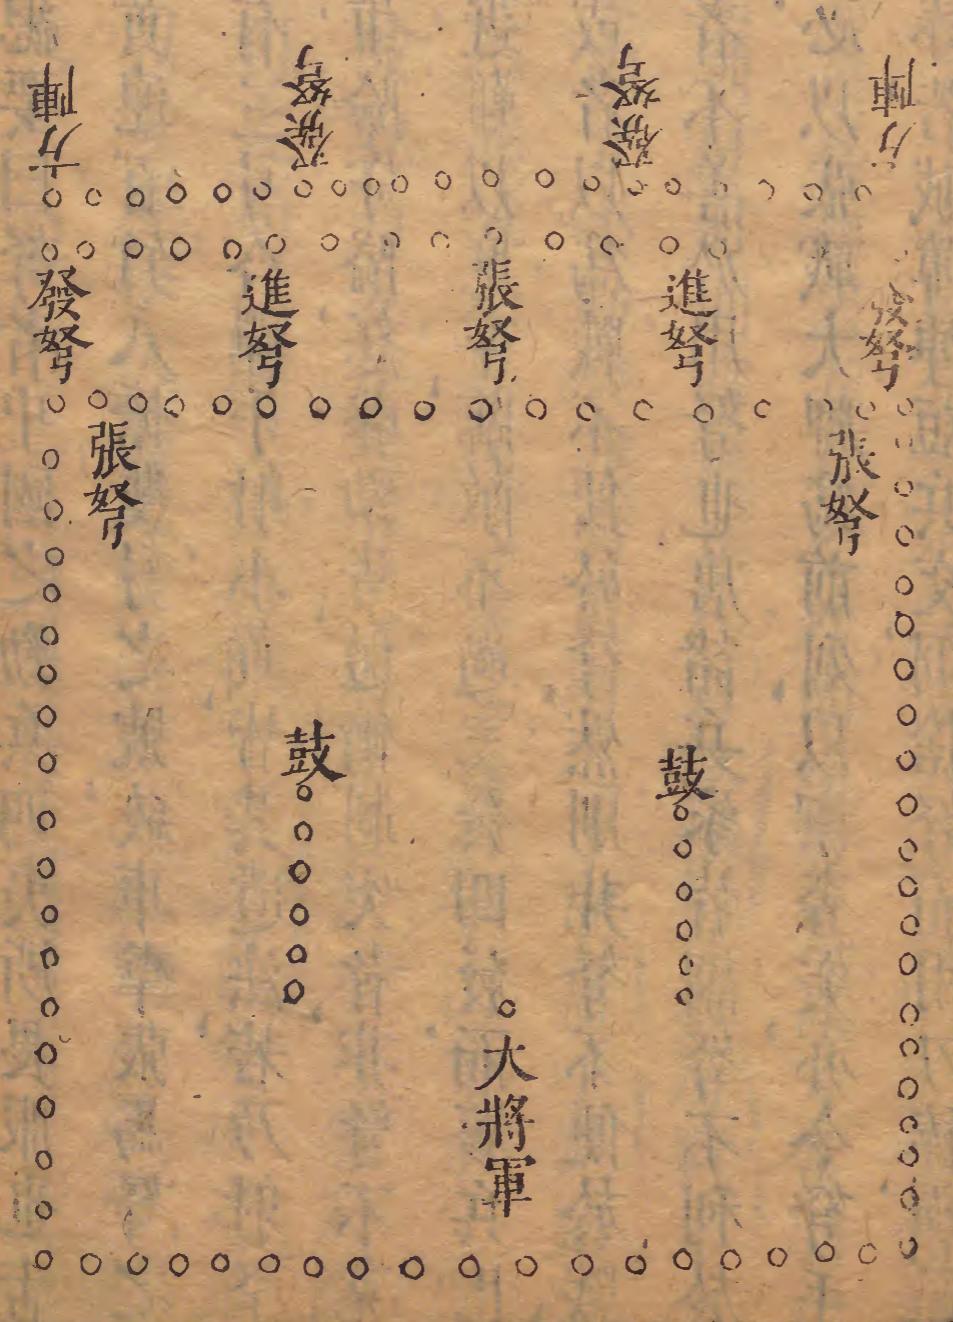 方陣
發弩
發弩
方陣
發弩
進弩
張弩
進弩
發弩
張弩
張弩
鼓
鼓
大將軍